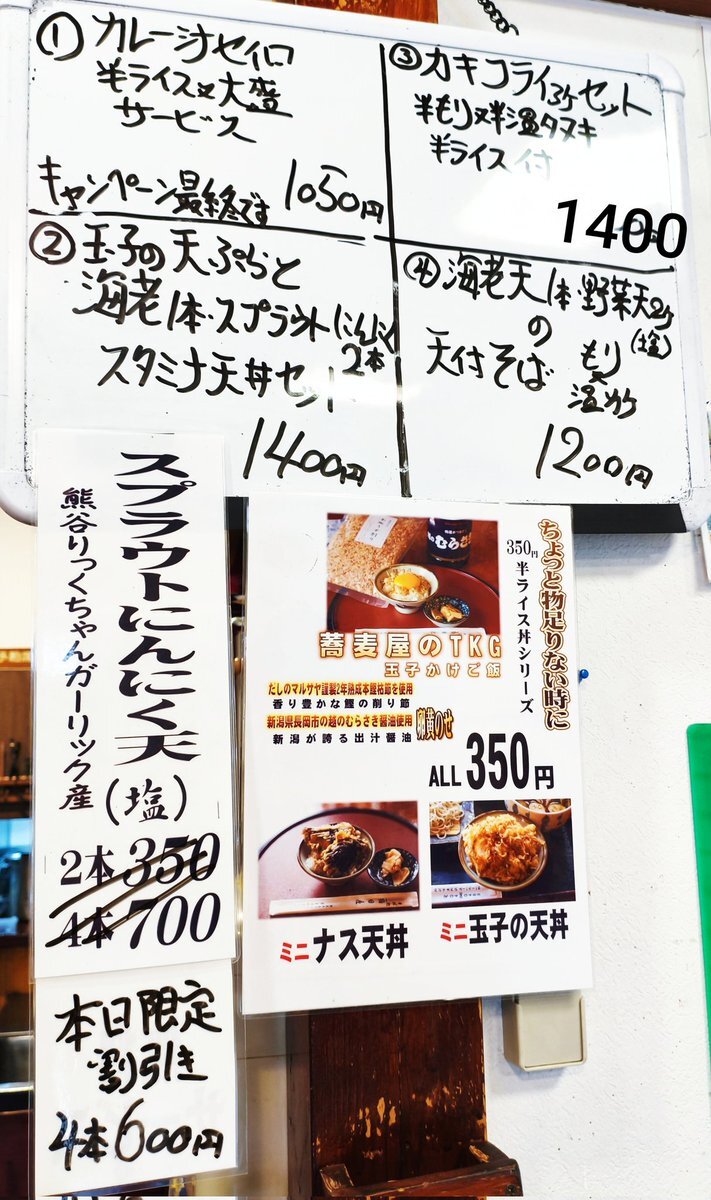 ① カレー汁セイロ
半ライス又大盛
サービス
キャンペーン最終です
1050円
② 玉子の天ぷらと
海老1本・スプラウトにんにく
2本
スタミナ天丼セット
1400円
③ カキフライ3ケセット
半もり又半温タヌキ
半ライス付
1400
④ 海老天1本・野菜天2ケ
(塩)
の
天付そば
もり
又
温かけ
1200円
スプラウトにんにく天
(塩)
熊谷りっくちゃんガーリック産
2本 350
4本 700
本日限定
割引き
4本600円
ちょっと物足りない時に
350円
半ライス丼シリーズ
蕎麦屋のTKG
玉子かけご飯
だしのマルサヤ謹製2年熟成本鰹枯節を使用
香り豊かな鰹の削り節
新潟県長岡市の越のむらさき醤油使用
新潟が誇る出汁醤油
卵黄のせ
ALL 350円
ミニナス天丼
ミニ玉子の天丼